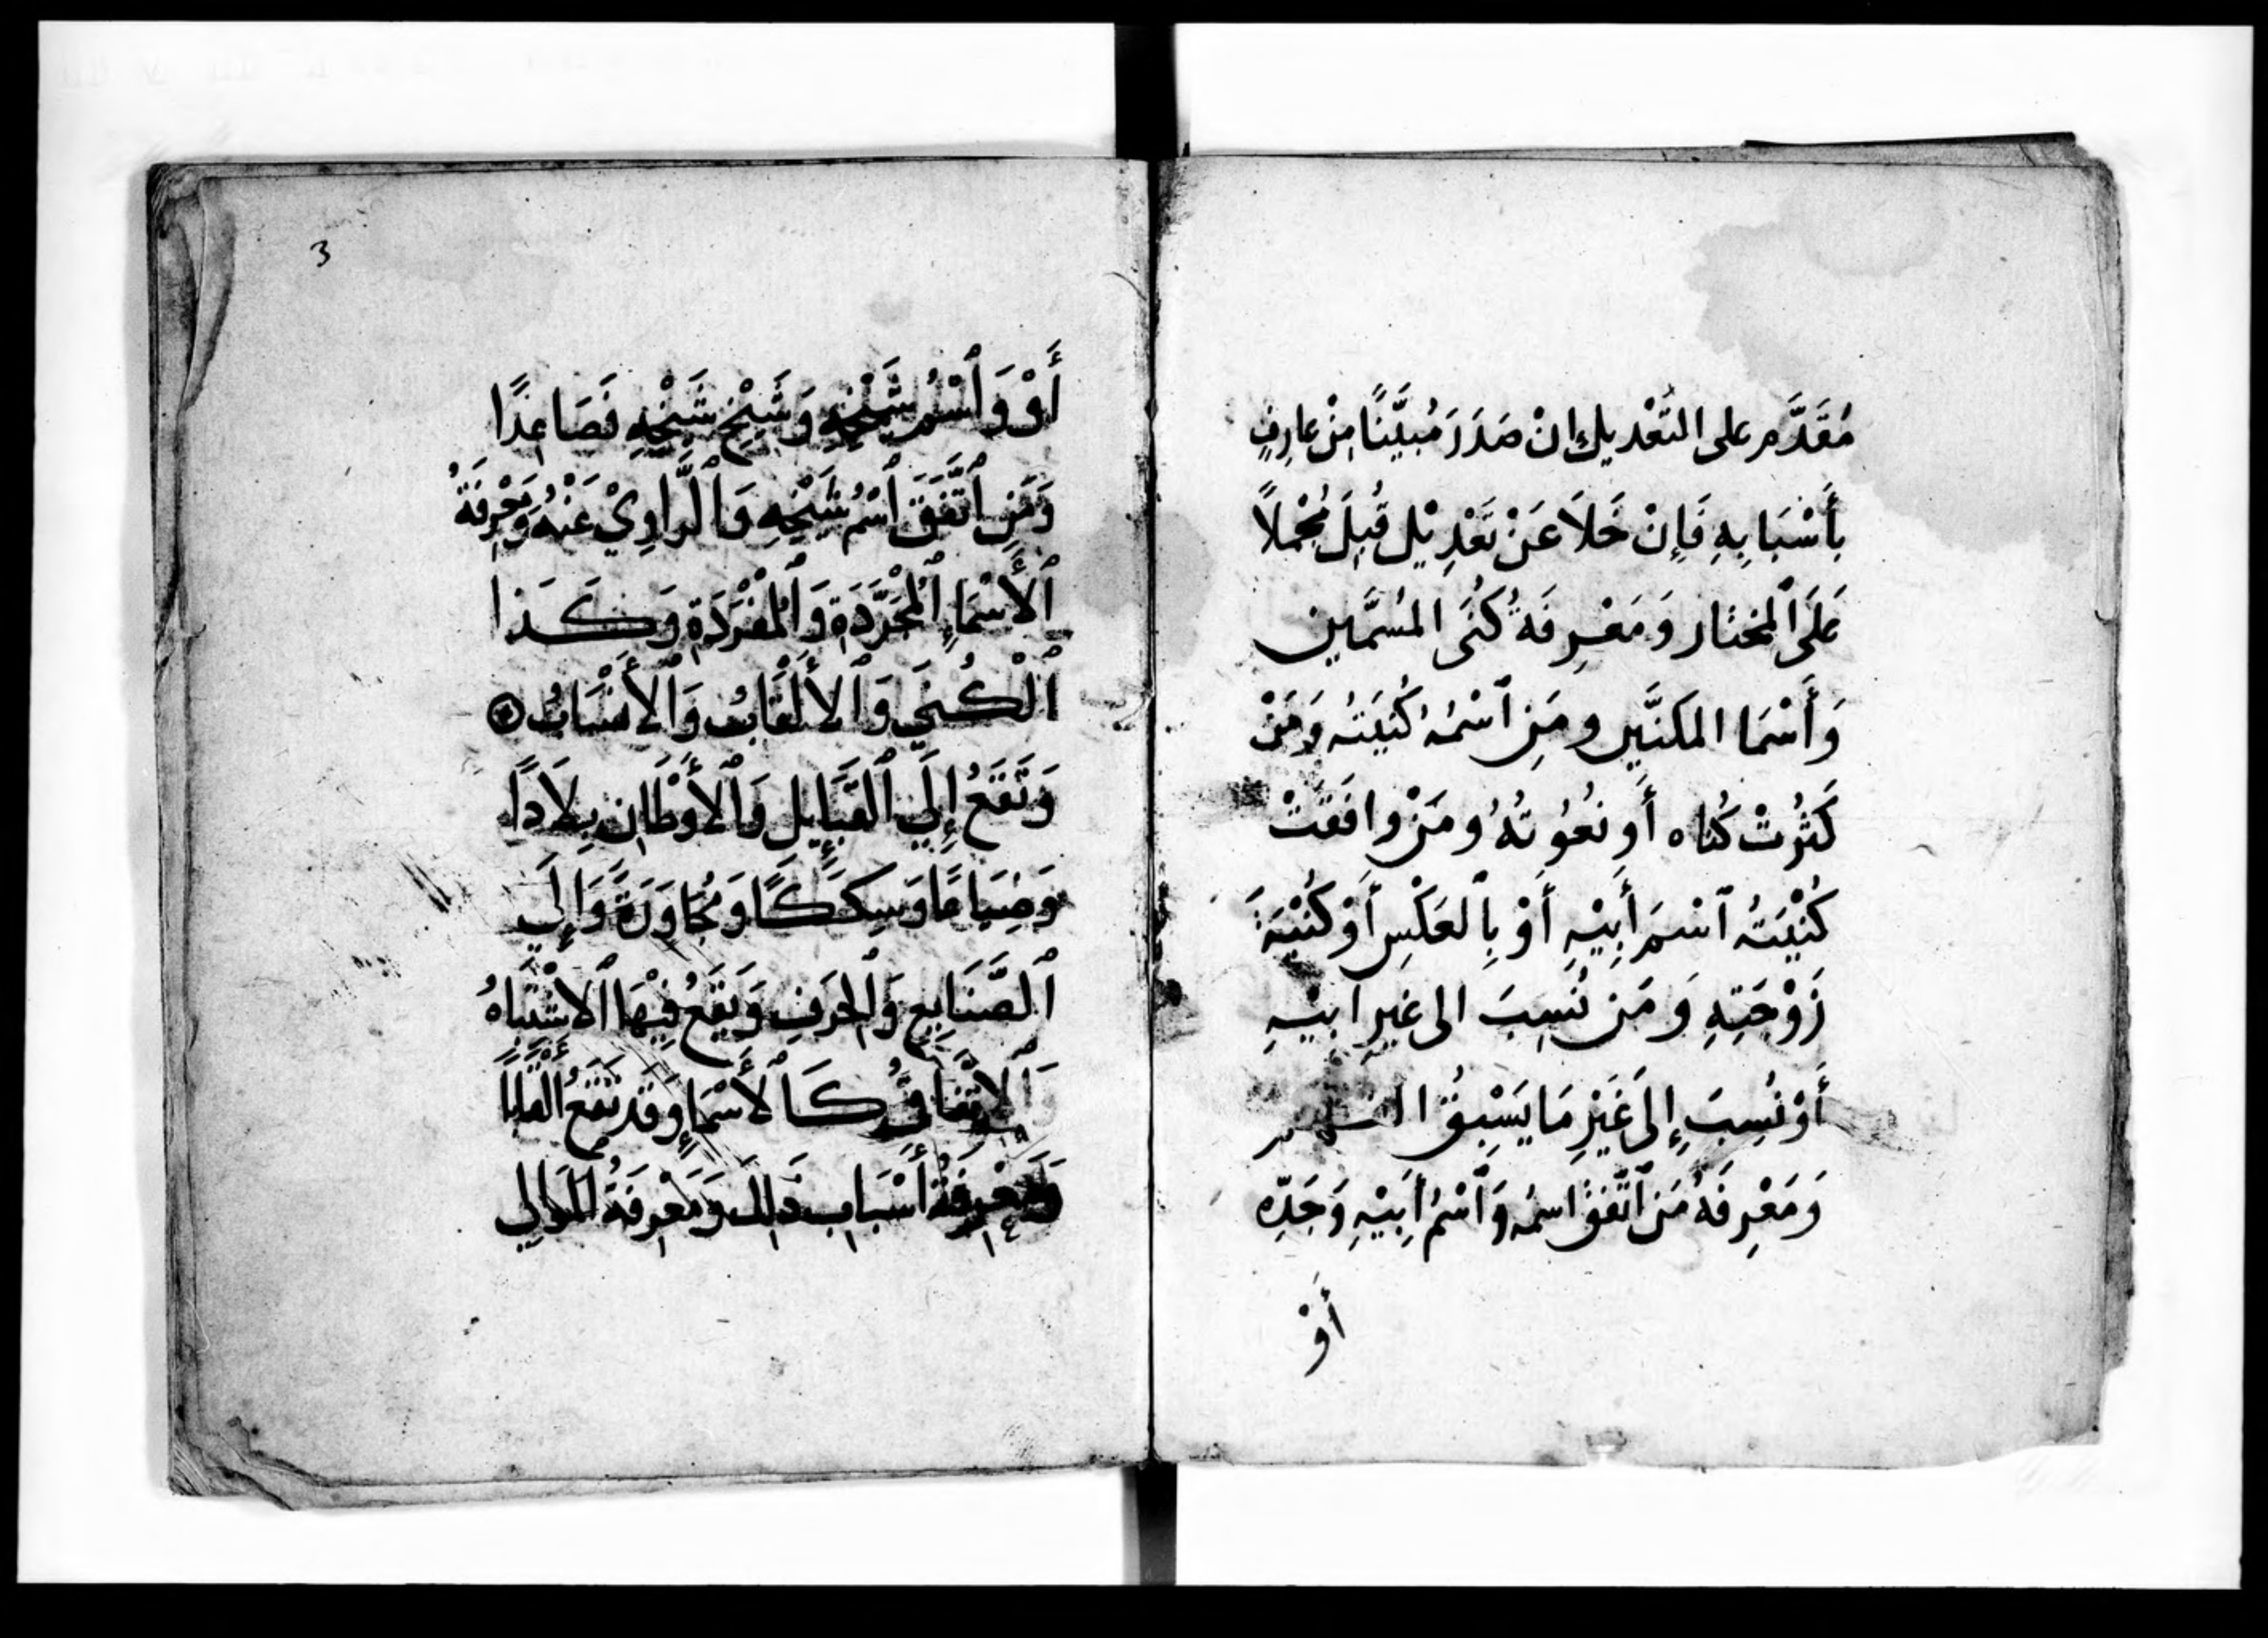 مُقَدَّم على التَّعْديل إنْ صَدَرَ مُبيَّنًا مِنْ عارِفٍ
بِأَسْبَابِهِ فَإِنْ خَلَا عَنْ تَعْدِيْلٍ قُبِلَ مُجْمَلًا
عَلَى ٱلْمختار وَمَعْرِفَةُ كُنَى المُسَمَّين
وَأَسْمَا المكنَّين ومَنِ ٱسْمُهُ كُنيَتُه وَمَنْ
كَثُرتْ كُناه أَو نعُوتُهُ ومَنْ وافَقَتْ
كُنْيَتُه ٱسْمَ أَبِيْهِ أَوْ بِالعَكْسِ أَوْ كُنْيَةَ
زَوْجَتِهِ وَمَن نُسِبَ الى غيرِ ابيْهِ
أَوْ نُسِبَ إِلَى غَيْرِ مَا يَسْبِقُ
وَمَعْرِفَةُ مَنِ ٱتَّفقَ اسمُه وَٱسْمُ أَبِيْهِ وَجَدِّه
أَوْ
3
أَوْ وَٱسْمُ شَيْخِهِ وَشَيْخِ شَيْخِهِ فَصَاعِدًا
وَمَنِ ٱتَّفَقَ ٱسْمُ شَيْخِهِ وَٱلرَّاوِيْ عَنْهُ وَمَعْرِفَةُ
ٱلْأَسْمَاءِ ٱلْمُجَرَّدَةِ وَٱلْمُفْرَدَةِ وَكَذا
ٱلْكُنَي وَٱلأَلْقَابُ وَٱلْأَنْسَابُ
وَتَقَعُ إِلَي ٱلْقَبَايِلِ وَٱلْأَوْطَانِ بِلَادًا
وَضِيَاعًا وَسِكَكًا وَمُجَاوَرَةً وَإِلَي
ٱلصَّنَايِعِ وَٱلْحِرَفِ وَيَقَعُ فِيْهَا ٱلاشْتِبَاهُ
وَٱلِاتِّفَاقُ كَٱلْأَسْمَاءِ وَقَد تَقَعُ أَلْقَابًا
وَمَعْرِفَةُ أَسْبَابِ ذَلِكَ وَمَعْرِفَةُ المَوَالِي